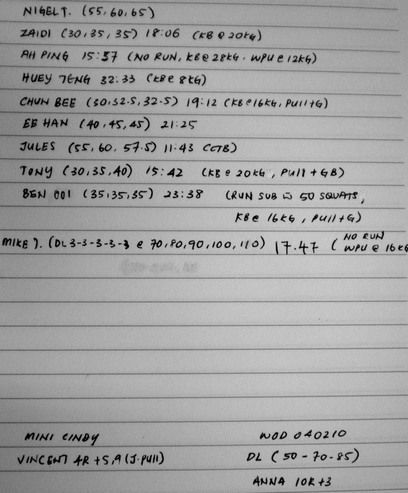 NIGEL T. (55,60,65)
ZAIDI (30,35,35) 18:06 (KB @ 20KG)
AH PING 15:57 (NO RUN, KB @ 28KG. WPU @ 12KG)
HUEY TENG 32:33 (KB @ 8KG)
CHUN BEE (30,32.5,32.5) 19:12 (KB @ 16KG, PULL+G)
EE HAN (40,45,45) 21:25
JULES (55,60,57.5) 11:43 (CTB)
TONY (30,35,40) 15:42 (KB @ 20KG, PULL+GB)
BEN OOI (35,35,35) 23:38 (RUN SUB W 50 SQUATS,
KB @ 16KG, PULL+G)
MIKE J. (DL 3-3-3-3-3 @ 70,80,90,100,110) 17.47 (NO RUN
WPU @ 16KG
MINI CINDY WOD 040210
VINCENT 4R+5,9 (J.PULL) DL (50-70-85)
ANNA 10R+3